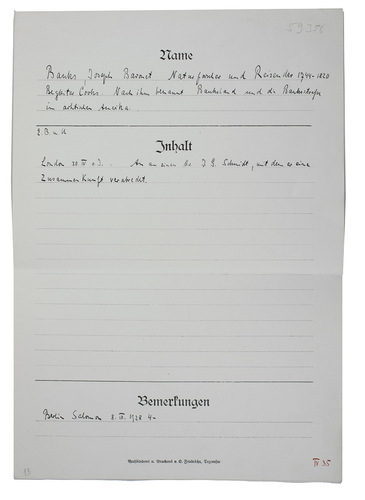 59356
Name
Banks, Joseph Baronet Naturforscher und Reisender 1744-1820
Begleiter Cooks. Nach ihm benannt Banksland und die Banksstraße
im arktischen Amerika.
E. B. u. U.
Inhalt
London 20 IV o. J. An einen Dr J. G. Schmidt, mit dem er eine
Zusammenkunft verabredet.
Bemerkungen
Berlin Salomon 8. IX. 1928 4-
Buchbinderei u. Druckerei v. O. Friedrichs, Tegernsee
IV 35